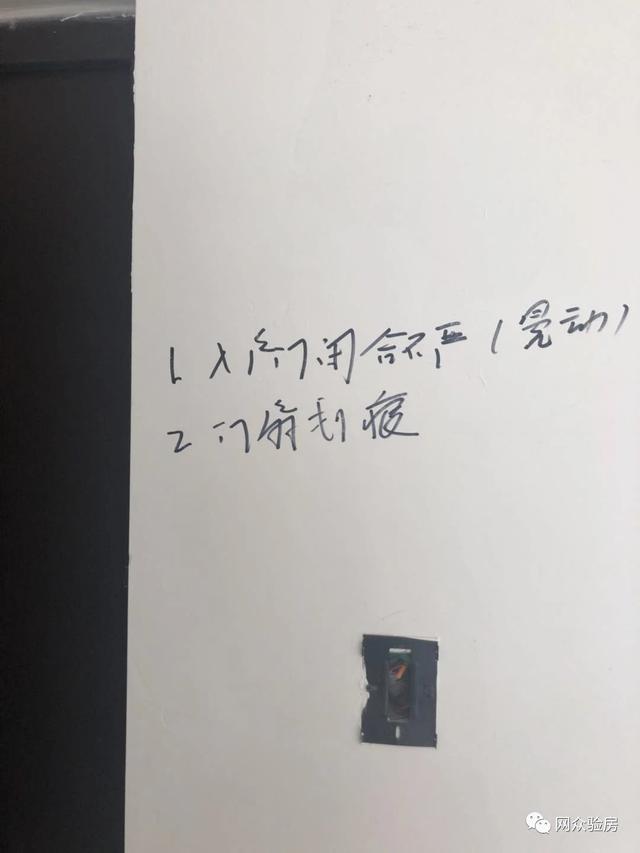 1. 入户门闭合不严(晃动)
2 门扇划痕
网众验房